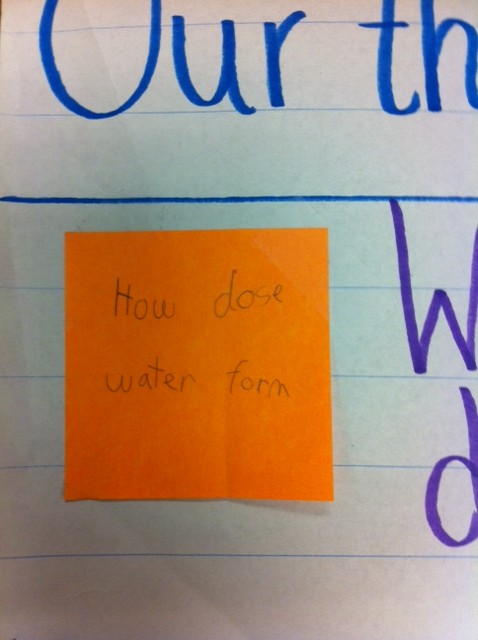 Our th
How dose
water form
W
d